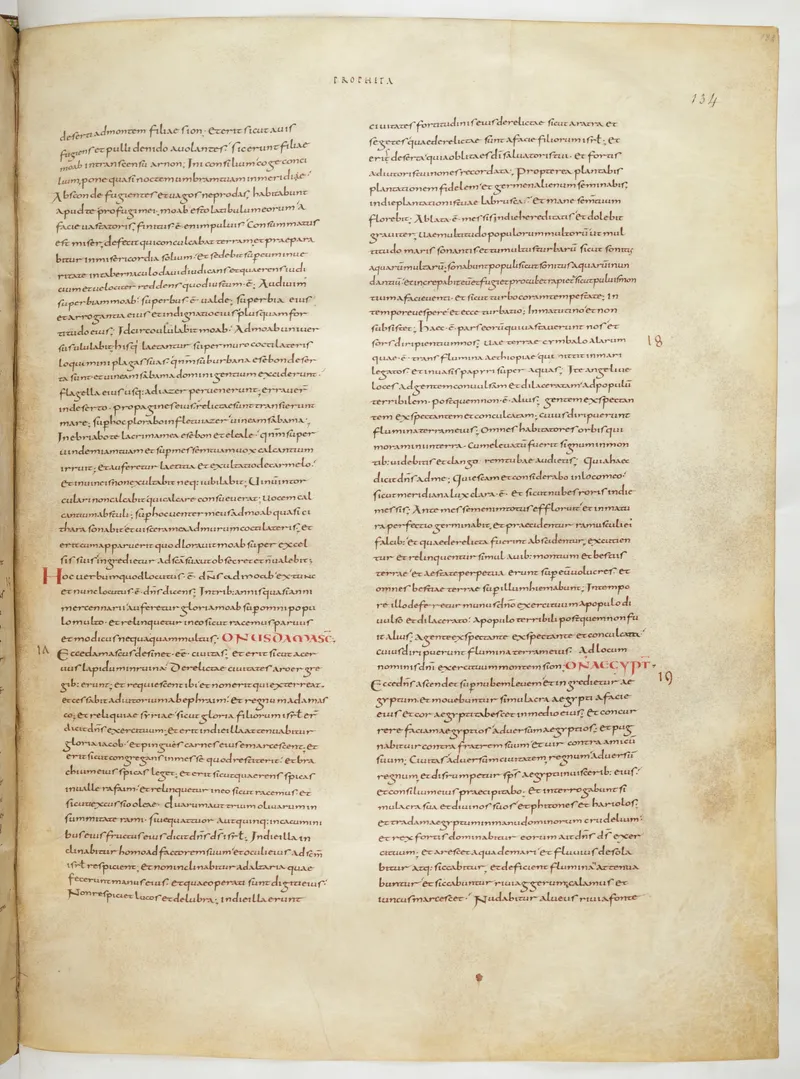 PROPHETA
134
deserti admontem filiae sion· Et erit sicut auis
fugiens et pulli denido auolantes· sic erunt filiae
moab intranscensū arnon; Ini consilium coge conci
lium, pone quasi noctem umbram tuam inmeridie·
Absconde fugientes et uagos ne prodas; habitabunt
apud te profugi mei, moab esto latibulum eorum a
facie uastatoris, finitus ē· enim puluis· Consummatus
est miser, defecit qui conculcabat terram, et praepara
bitur inmisericordia solium· et sedebit sup eum inue
ritate intabernaculo dauid iudicans et quaerens iudi
cium et uelociter reddens quod iustum ē; Audiuim
superbiam moab· superbus ē· ualde; superbia eius
et arrogantia eius et indignatio eius plusquam for
titudo eius; Idcirco ululabit moab· Ad moab uniuer
sus ululabit; his q̨ laetantur super muro cocti lateris
loquimini plagas suas· qm̄ suburbana esebon deser
ta sunt· et uineam sabama domini gentium exciderunt·
flagella eius usq; adiazer peruenerunt; errauer̄
indeserto· propagines eius relictae sunt, transierunt
mare; sup hoc plorabo infletu iazer· uineam sabama·
Inebriabo te lacrima mea esebon et eleale· qm̄ super
uindemiam tuam et sup messem tuam uox calcantium
irruit; Et auferetur laetitia et exultatio decarmelo·
Et inuineis non exultabit neq; iubilabit; Uinū intor
culari non calcabit qui calcare consueuerat; uocem cal
cantium abstuli; sup hoc uenter meus ad moab quasi ci
thara sonabit et uiscera mea ad murum cocti lateris; et
erit cum apparuerit quod laborauit moab super excel
sis suis ingredietur ad scā sua ut obsecret et n̄ ualebit;
Hoc uerbum quod locutus ē· dn̄s ad moab· ex tunc
et nunc locutus ē· dn̄s dicens; Intrib; annis quasi anni
mercennarii auferetur gloria moab sup omni popu
lo multo· et relinquetur ineo sicut racemus paruus
et modicus nequaquam multus· ONUS DAMASC̄·
18
Ecce damascus desinet· eē· ciuitas; et erit sicut acer
uus lapidum inruina· Derelictae ciuitates aroer gre
gib; erunt; et requiescent ibi· et non erit qui exterreat·
et cessabit adiutorium ab ephraim· Et regnum adamas
co; et reliquiae syriae· sicut gloria filiorum isr̄l· er̄
dicit dn̄s exercituum; et erit indie illa attenuabitur
gloria iacob· et pingues carnes eius emarcescent; et
erit sicut congregans inmesse quod restiterit· et bra
chium eius spicas leget; et erit sicut quaerens spicas
inualle rafaim· et relinquetur ineo sicut racemus et
sicut excussio oleae· duarum aut trium oliuarum in
summitate rami· siue quattuor aut quinq; incacumini
bus eius fructus eius dicit dn̄s ds̄ isr̄l; Indie illa in
clinabitur homo ad factorem suum et oculi eius ad sc̄m
isr̄l respicient, et non inclinabitur ad altaria quae
fecerunt manus eius· et quae operati sunt digiti eius·
Non respiciet lucos et delubra; indie illa erunt
ciuitates fortitudinis eius derelictae sicut aratra et
segetes quae derelictae sunt afacie filiorum isr̄l; et
erit deserta· quia oblita es dī saluatoris tui· et fortis
adiutoris tui non es recordata; Propterea plantabis
plantationem fidelem et germen alienum seminabis;
indie plantationis tuae labrusca· Et mane semen tuum
florebit; Ablata ē· messis indie hereditatis et dolebit
grauiter; Uae multitudo populorum multorū ut mul
titudo maris sonantis et tumultus turbarū sicut sonitus
aquarū multarū; sonabunt populi sicut sonitus aquarū inun
dantiū· et increpabit eū et fugiet procul et rapietur sicut puluis mon
tium afacie uenti· et sicut turbo coram tempestate; In
tempore uespere· et ecce turbatio; Inmatutino et non
subsistet; haec ē· pars eorū qui uastauerunt nos et
sors diripientium nos; Uae terrae cymbalo alarum
18
quae ē· trans flumina aethiopiae· qui mittit inmari
legatos et inuasis papyri super aquas; Ite angeli ue
loces ad gentem conuulsam et dilaceratam· ad populū
terribilem· post quem non ē· alius; gentem exspectan
tem exspectantem et conculcatam; cuius diripuerunt
flumina terram eius; Omnes habitatores orbis qui
moramini interra· Cum eleuatū fuerit signum inmon
tib; uidebitis et clangorem tubae audietis; Quia haec
dicit dn̄s ad me; Quiescam et considerabo inloco meo·
sicut meridiana lux clara ē· et sicut nubes roris indie
messis; Ante messem enim totus effloruit et inmatu
ra perfectio germinabit, et praecidentur ramusculi ei
falcib; et quae derelicta fuerint abscidentur, excutien
tur et relinquentur simul auib; montium et bestiis
terrae· et aestate perpetua erunt sup eū uolucres et
omnes bestiae terrae sup illum hiemabunt; Intempo
re illo deferetur munus dn̄o exercituum apopulo di
uulso et dilacerato· Apopulo terribili post quem non fu
it alius; Agente exspectante exspectante et conculcata
cuius diripuerunt flumina terram eius· Ad locum
nominis dn̄i exercituum montem sion; ON̄ AEGYPT̄·
19
Ecce dn̄s ascendet sup nubem leuem et ingredietur ae
gyptum· et mouebuntur simulacra aegypti afacie
eius et cor aegypti tabescet inmedio eius; et concur
rere faciam aegyptios aduersum aegyptios; et pug
nabit uir contra fratrem suum et uir contra amicū
suum; Ciuitas aduersum ciuitatem, regnum aduersū
regnum, et disrumpetur sps̄ aegypti inuiscerib; eius·
et consilium eius praecipitabo· Et interrogabunt si
mulacra sua et diuinos suos et phitones et hariolos;
et tradam aegyptum inmanu dominorum crudelium·
et rex fortis dominabitur eorum ait dn̄s ds̄ exer
cituum; et arescet aqua de mari et fluuius desola
bitur atq; siccabitur, et deficient flumina· attenua
buntur et siccabuntur riui aggerum; calamus et
iuncus marcescet· Nudabitur alueus riui afonte